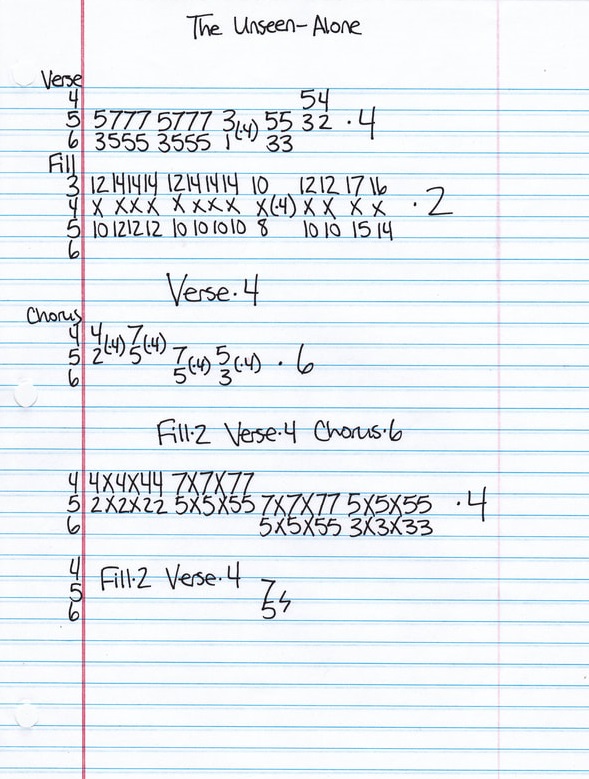 The Unseen-Alone
Verse
4 54
5 5777 5777 3(·4) 55 32 ·4
6 3555 3555 1 33
Fill
3 12141414 12141414 10 1212 17 16
4 X XXX X XXX X(·4) X X X X ·2
5 10121212 10101010 8 1010 15 14
6
Verse·4
Chorus
4 4(·4) 7(·4)
5 2 5 7(·4) 5(·4) ·6
6 5 3
Fill·2 Verse·4 Chorus·6
4 4X4X44 7X7X77
5 2X2X22 5X5X55 7X7X77 5X5X55 ·4
6 5X5X55 3X3X33
4 Fill·2 Verse·4
5 7
6 5